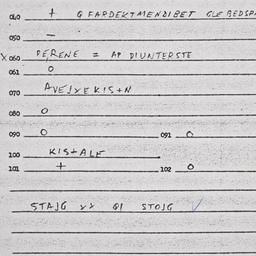 040 + G FARDEKTMENDIBET GLE BEDSPA
050 —
X 060 PERENE = AP DIUNTERSTE
061 O
070 AVEJXEKIS+N
080 O
090 O 091 O
100 KIS+ALF
101 + 102 O
STAJG xx GI STOJG ✓